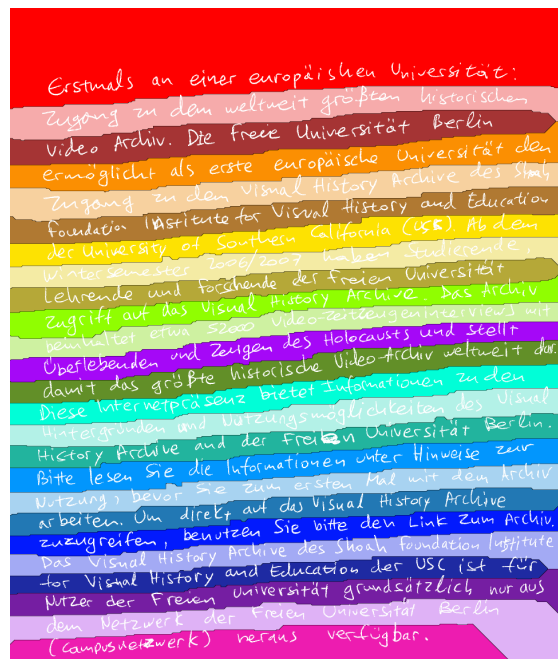 Erstmals an einer europäishen Universität:
Zugang zu dem weltweit größten historischen
Video Archiv. Die freie Universität Berlin
ermöglicht als erste europäische Universität den
Zugang zu den Visual History Archive des Shoah
Foundation Institute for Visual History and Education
der University of Southern California (USC). Ab dem
Wintersemester 2006/2007 haben Studierende,
Lehrende und forschende der freien Universität
Zugriff auf das Visual History Archive. Das Archiv
beinhaltet etwa 52000 Video-Zeitzeugeninterviews mit
Überlebenden und Zeugen des Holocausts und stellt
damit das größte historische Video-Archiv weltweit dar.
Diese Internetpräsenz bietet Informationen zu den
Hintergründen und Nutzungsmöglichkeiten des Visual
History Archive and der Freien Universität Berlin.
Bitte lesen Sie die Informationen unter Hinweise zur
Nutzung, bevor Sie zum ersten Mal mit dem Archiv
arbeiten. Um direkt auf das Visual History Archive
zuzugreifen, benutzen Sie bitte den Link zum Archiv.
Das Visual History Archive des Shoah Foundation Institute
for Visual History and Education der USC ist für
Nutzer der Freien Universität grundsätzlich nur aus
dem Netzwerk der Freien Universität Berlin
(Campusnetzwerk) heraus verfügbar.